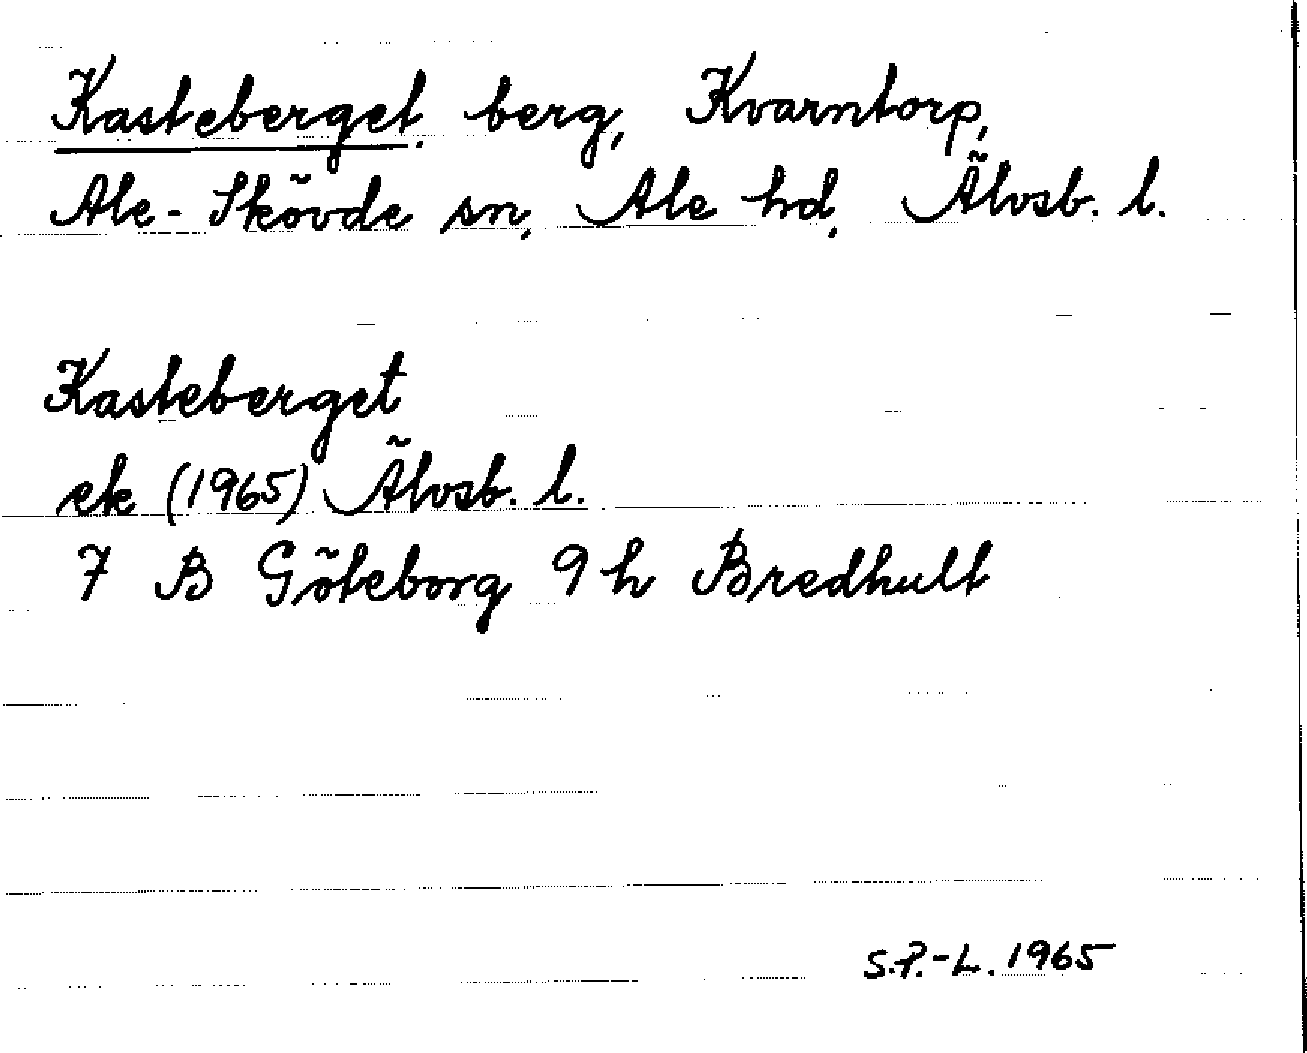 Kasteberget, berg, Kvarntorp,
Ale-Skövde sn, Ale hd, Älvsb. l.
Kasteberget
ek (1965) Älvsb. l.
7 B Göteborg 9 h Bredhult
S.P.-L. 1965